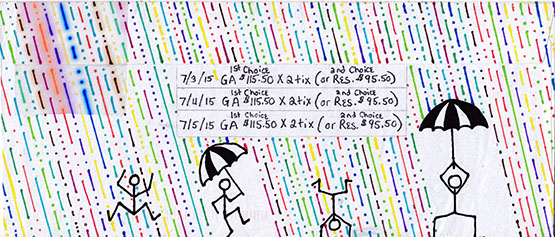 1st Choice 2nd Choice
7/3/15 GA $115.50 X 2 tix (or RES. $95.50)
1st Choice 2nd Choice
7/4/15 GA $115.50 X 2 tix (or RES. $95.50)
1st Choice 2nd Choice
7/5/15 GA $115.50 X 2 tix (or RES. $95.50)